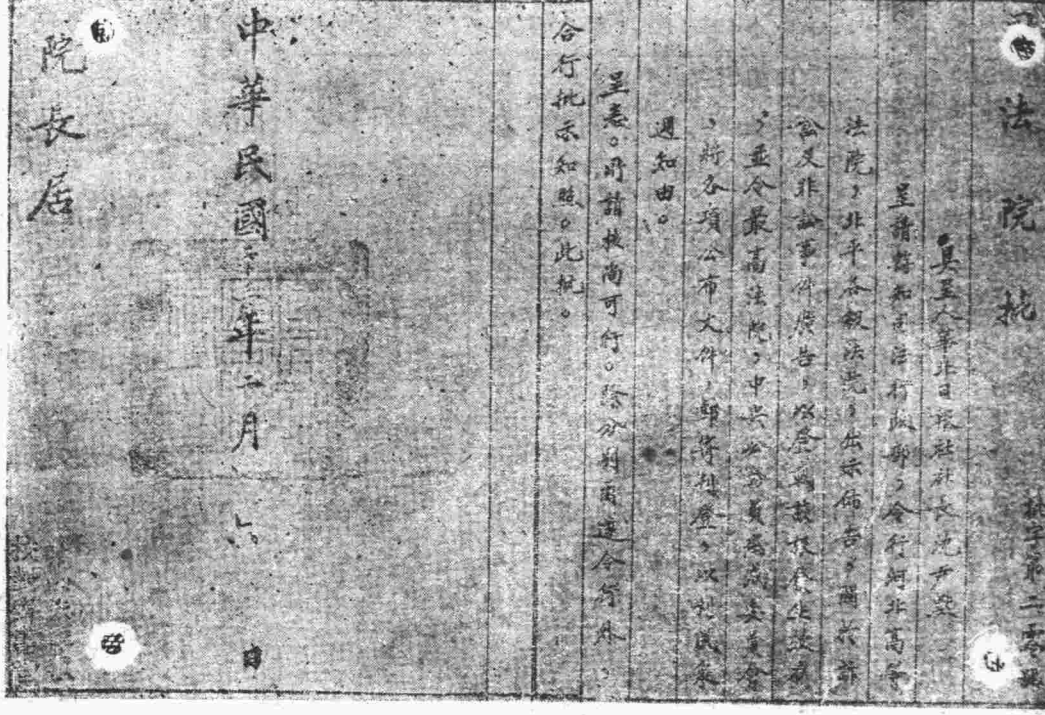 法院批
批字第二零號
具呈人華北日報社社長沈尹默
呈請轉知司法行政部,令行河北高等
法院,北平各級法院,出示佈告,關於訴
訟及非訟事件廣告,以登載該報發生效力
,並令最高法院,中央公務員懲戒委員會
,將各項公布文件,郵寄刊登,以利民衆
週知由。
呈悉。所請核尚可行。除分別函達令行外,
合行批示知照。此批。
中華民國二十二年二月六日
院長居